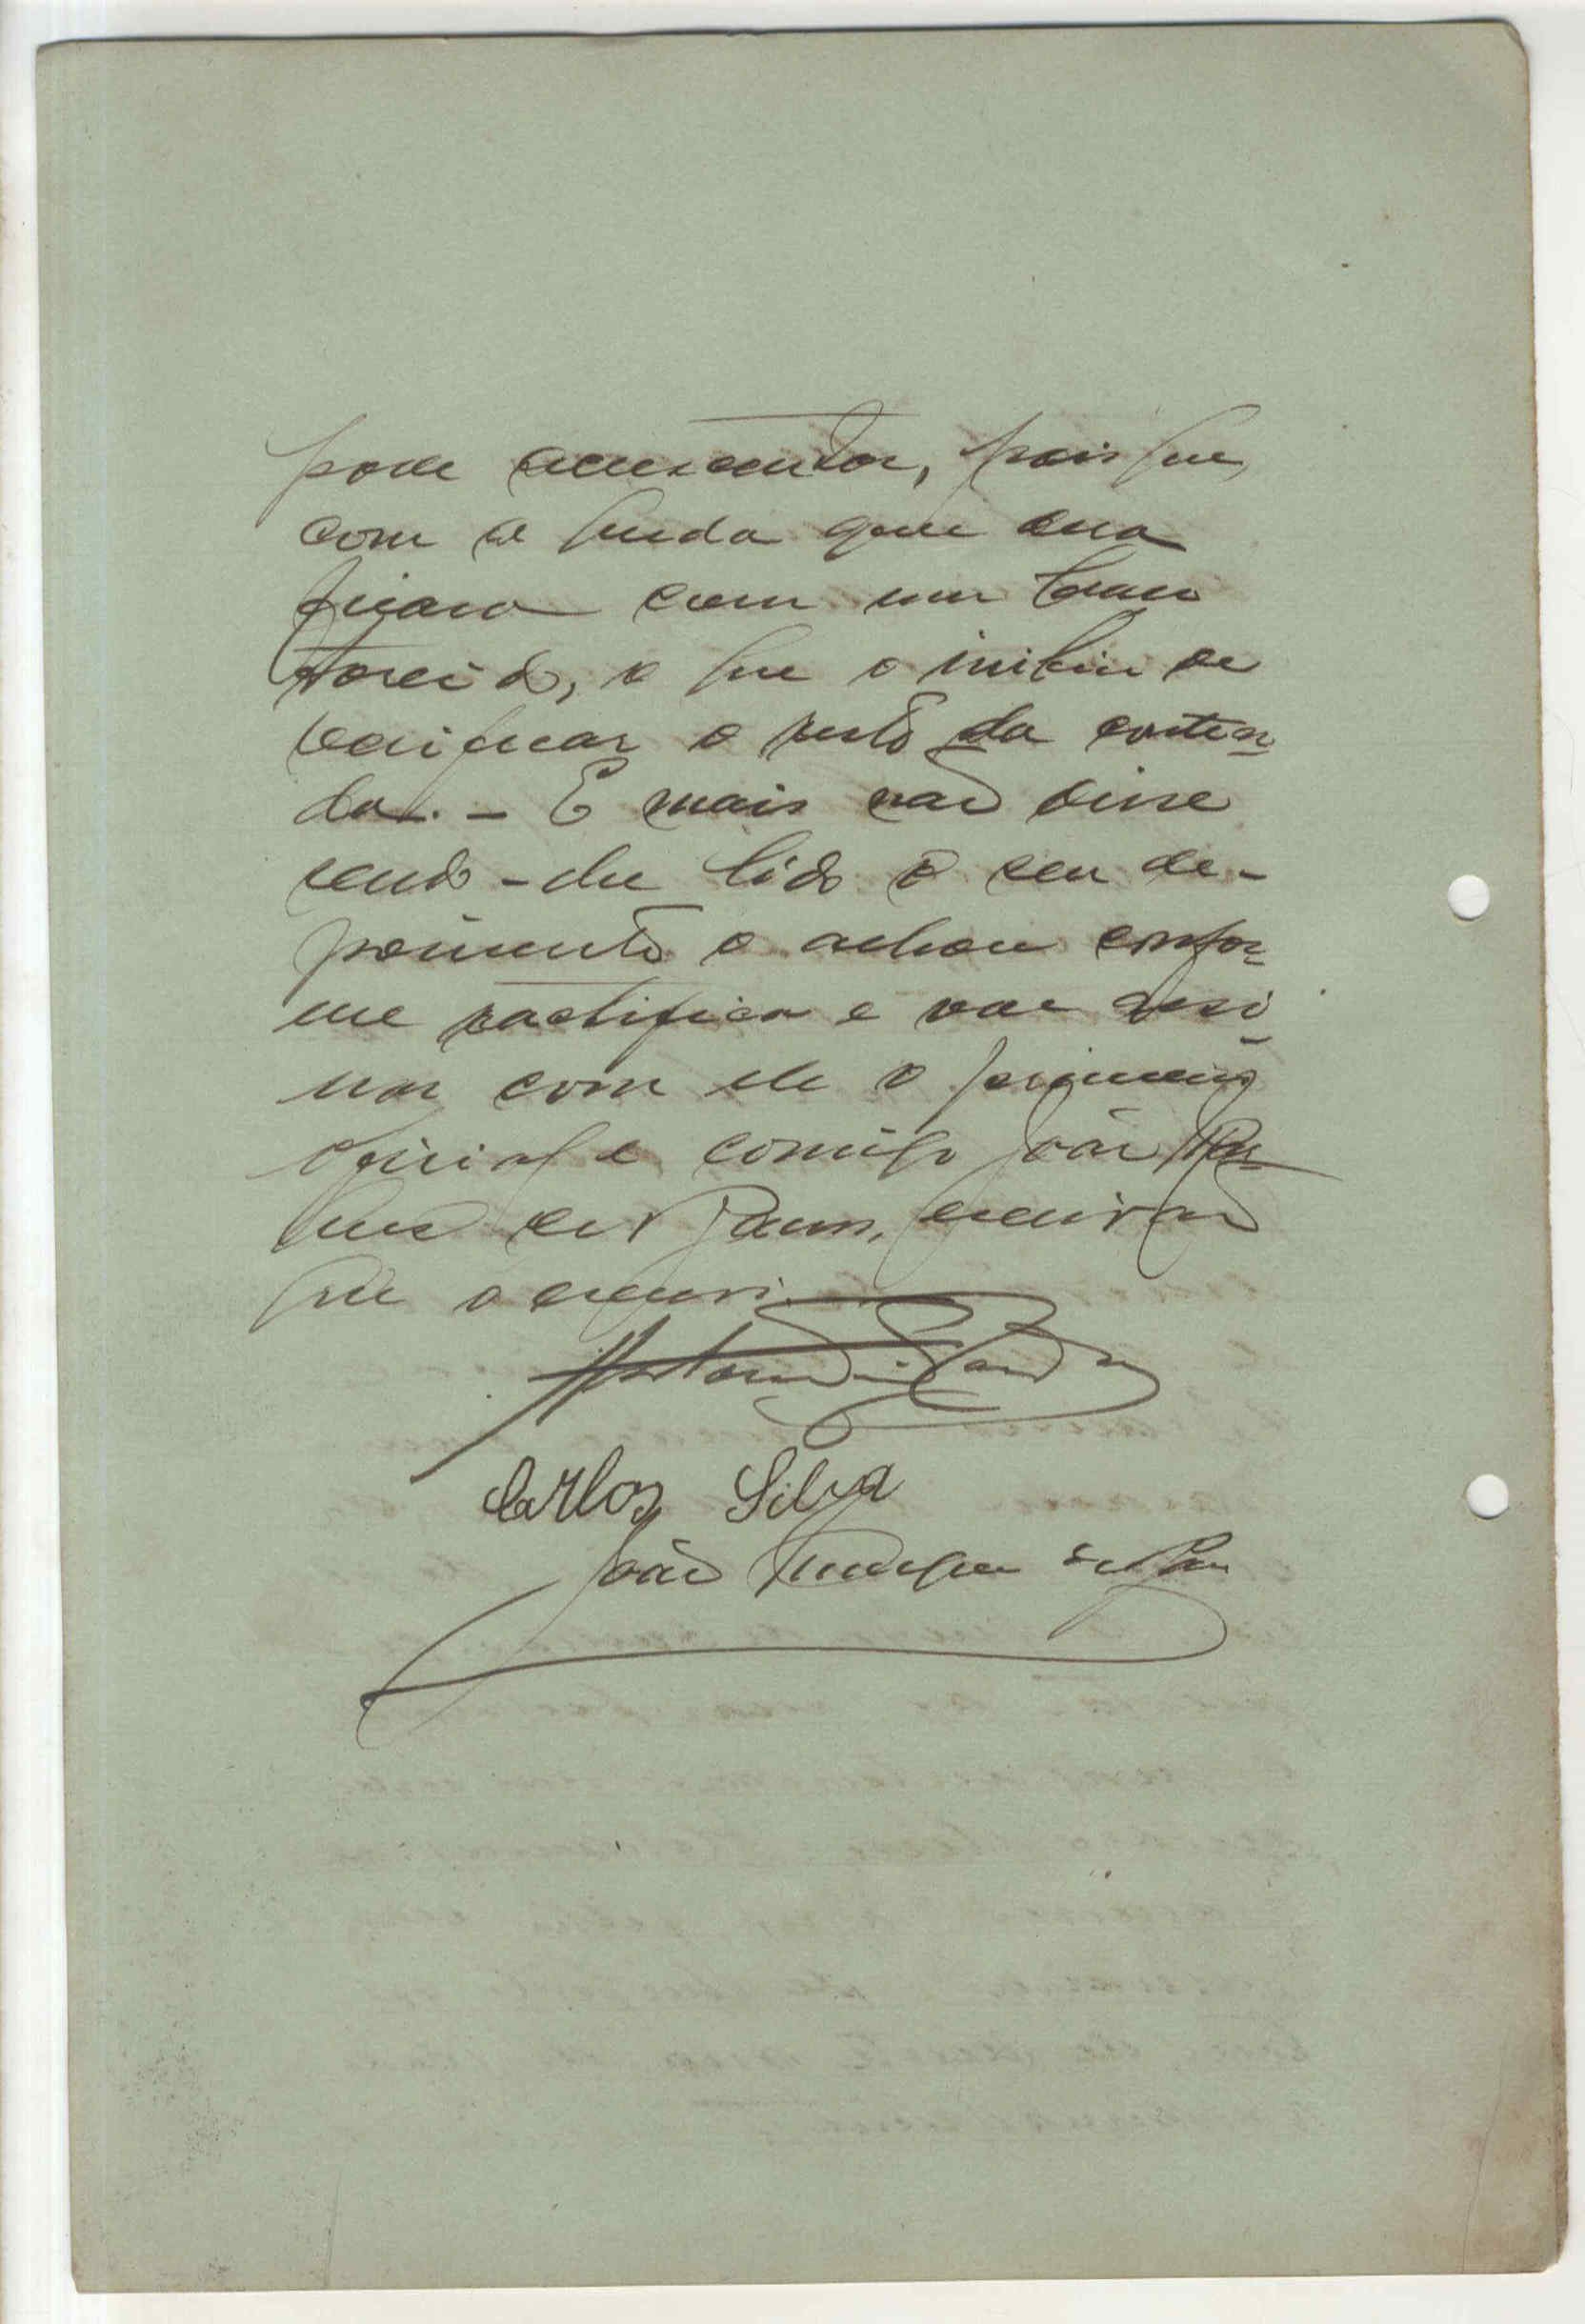 pode accrescentar, pois que,
com a queda que deu
ficara com um braço
torcido, o que o inibiu de
verificar o resto da conten
da. - E mais não disse
sendo-lhe lido o seu de-
poimento o achou confor
me ractifica e vae assi
nar com ele o primeiro
oficial e comigo João
que o escrevi.
Carlos Silva
João